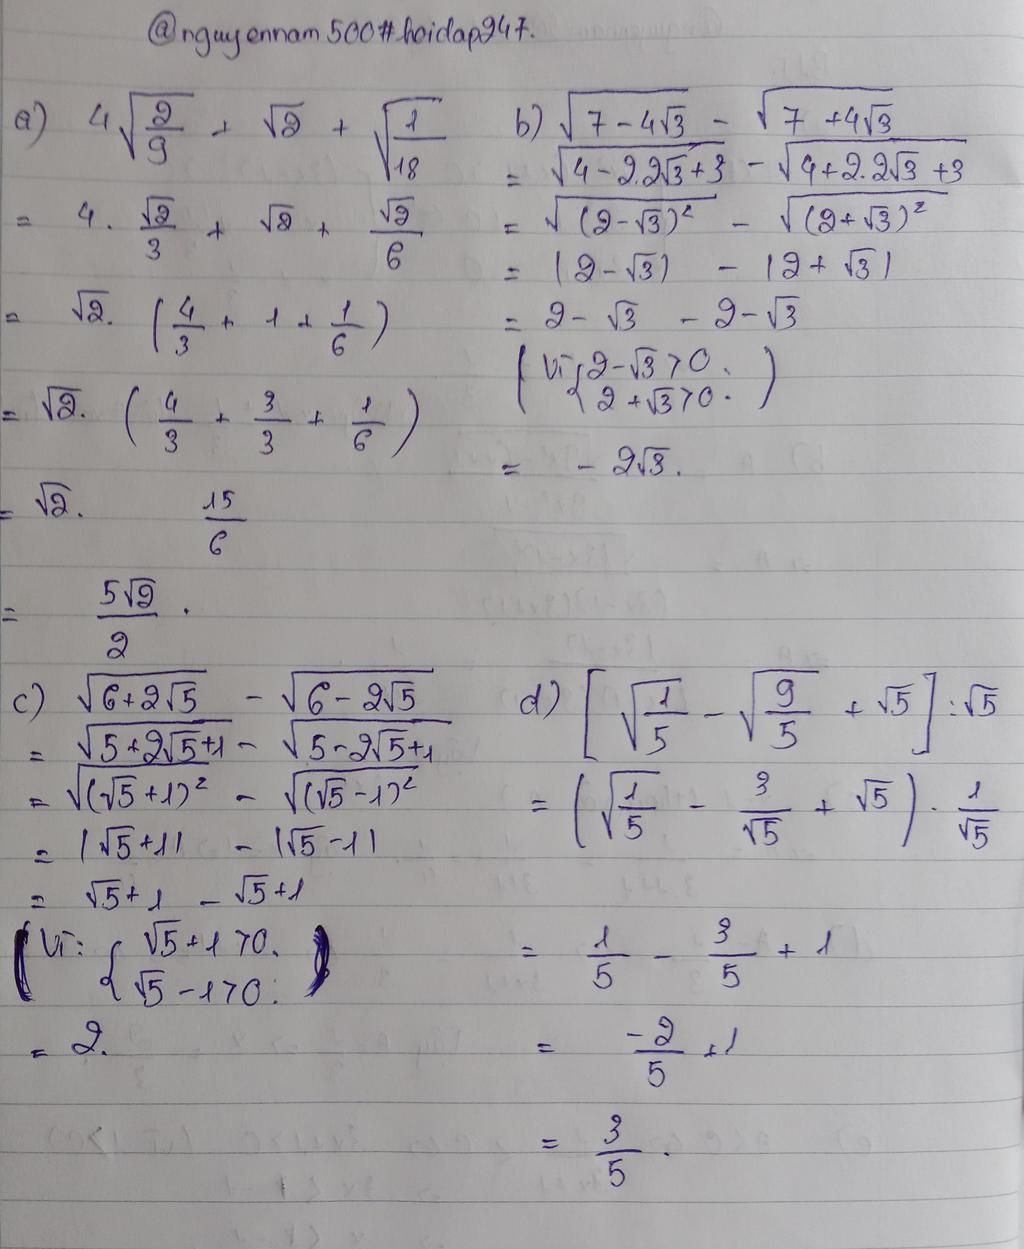 @nguyennam500#hoidap247.
a) 4√(2/9) + √2 + √(1/18)
= 4. √2/3 + √2 + √2/6
= √2. (4/3 + 1 + 1/6)
= √2. (4/3 + 3/3 + 1/6)
= √2. 15/6
= 5√2/2 .
b) √(7 - 4√3) - √(7 + 4√3)
= √(4 - 2.2√3 + 3) - √(4 + 2.2√3 + 3)
= √((2 - √3)²) - √((2 + √3)²)
= |2 - √3| - |2 + √3|
= 2 - √3 - 2 - √3
(Vì { 2 - √3 > 0 .
2 + √3 > 0 . )
= - 2√3 .
c) √(6 + 2√5) - √(6 - 2√5)
= √(5 + 2√5 + 1) - √(5 - 2√5 + 1)
= √((√5 + 1)²) - √((√5 - 1)²)
= |√5 + 1| - |√5 - 1|
= √5 + 1 - √5 + 1
(Vì: { √5 + 1 > 0 .
√5 - 1 > 0 . )
= 2.
d) [√(1/5) - √(9/5) + √5] : √5
= (√(1/5) - 3/√5 + √5) . 1/√5
= 1/5 - 3/5 + 1
= -2/5 + 1
= 3/5 .